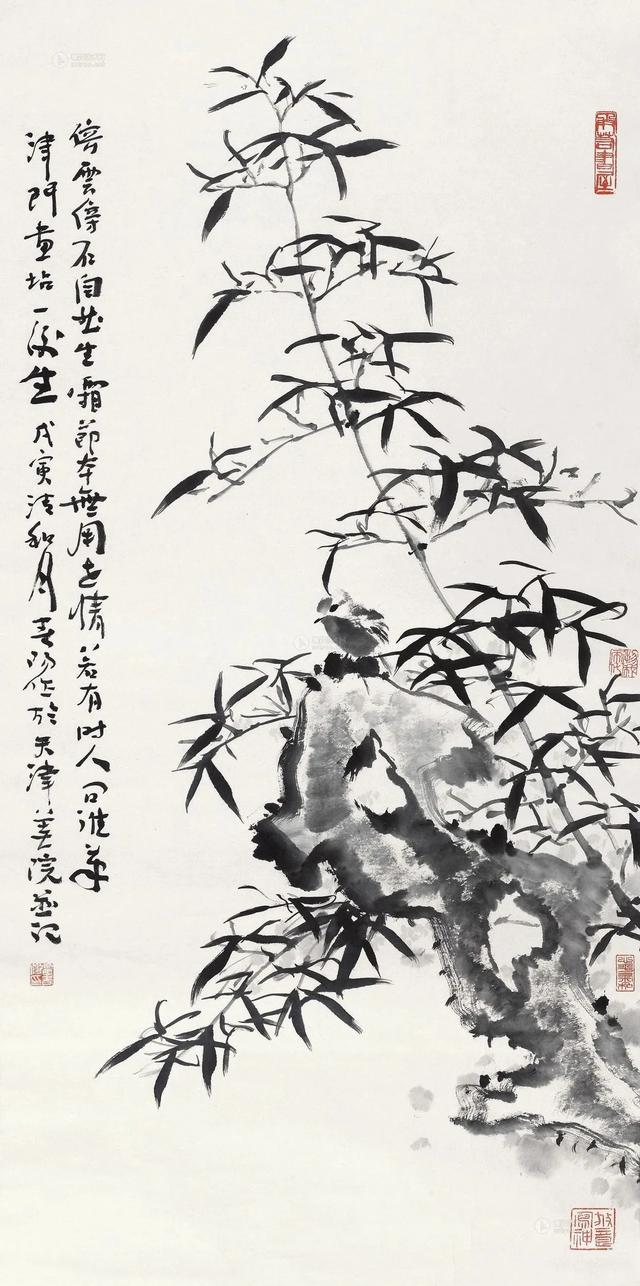 倚雲傍石自然生霜節本無用世情若有時人問誰筆
津門畫坫一後生戊寅清和月春陽作於天津美院並記